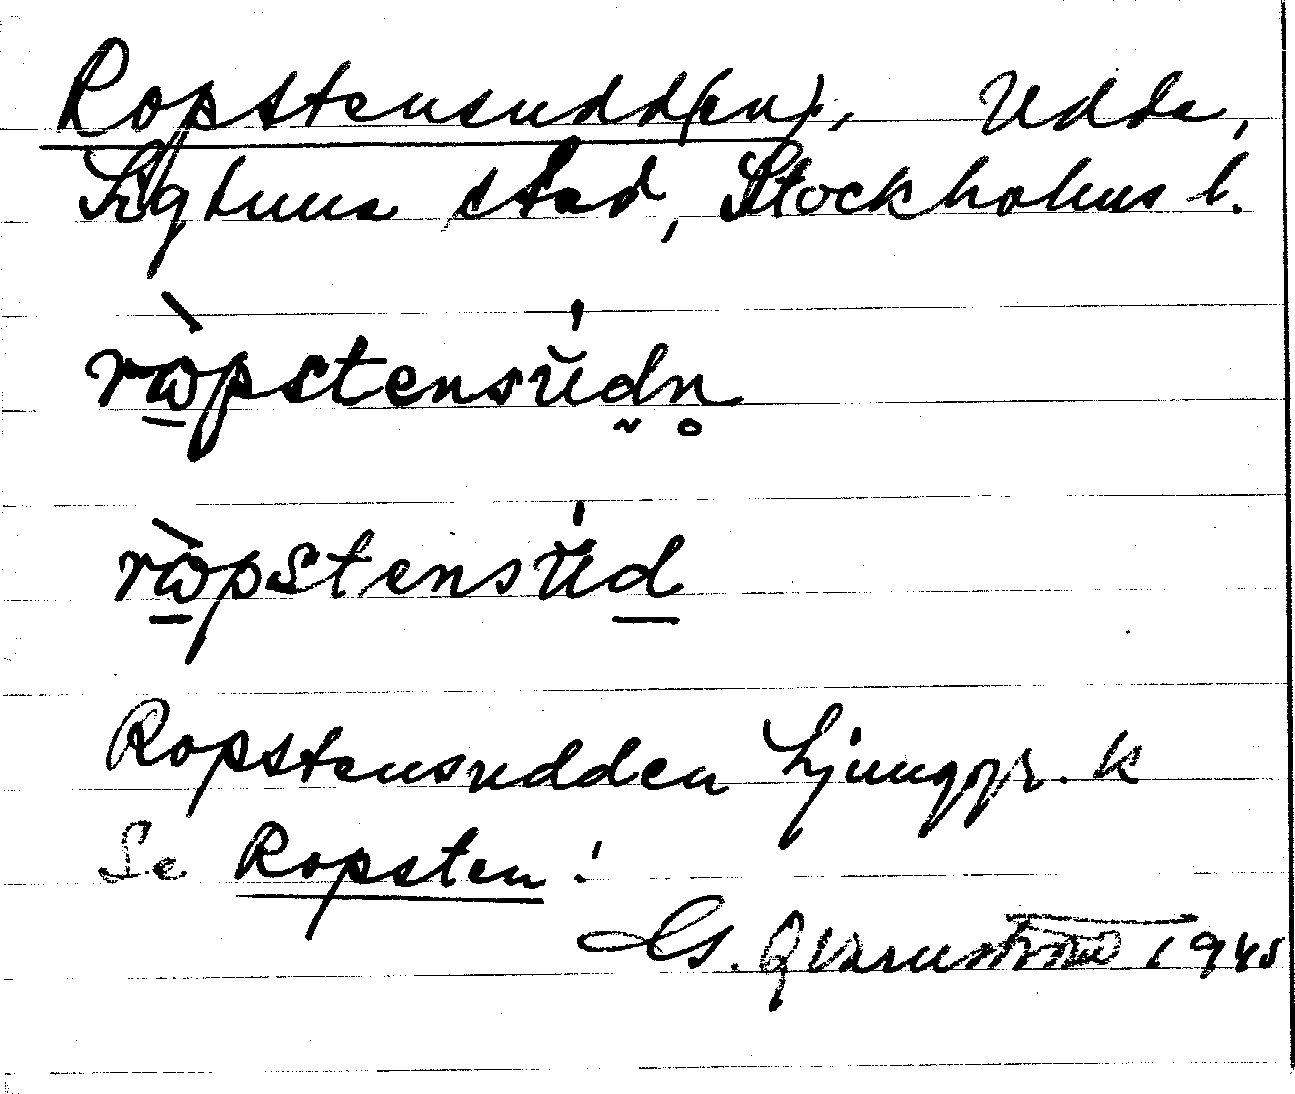 Ropstensudd(en), Udde,
Sigtuna stad, Stockholms l.
rɷ̀pstensŭ́dn̥
rɷ̀pstensŭ́d
Ropstensudden Ljunggr. k
Se Ropsten!
G. Qvarnström 1945